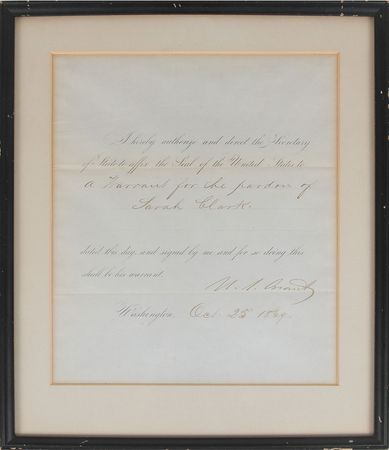 I hereby authorize and direct the Secretary
of State to affix the Seal of the United States to
a Warrant for the pardon of
Sarah Clark.
dated this day, and signed by me and for so doing this
shall be his warrant.
U. S. Grant
Washington, Oct. 25 1869.